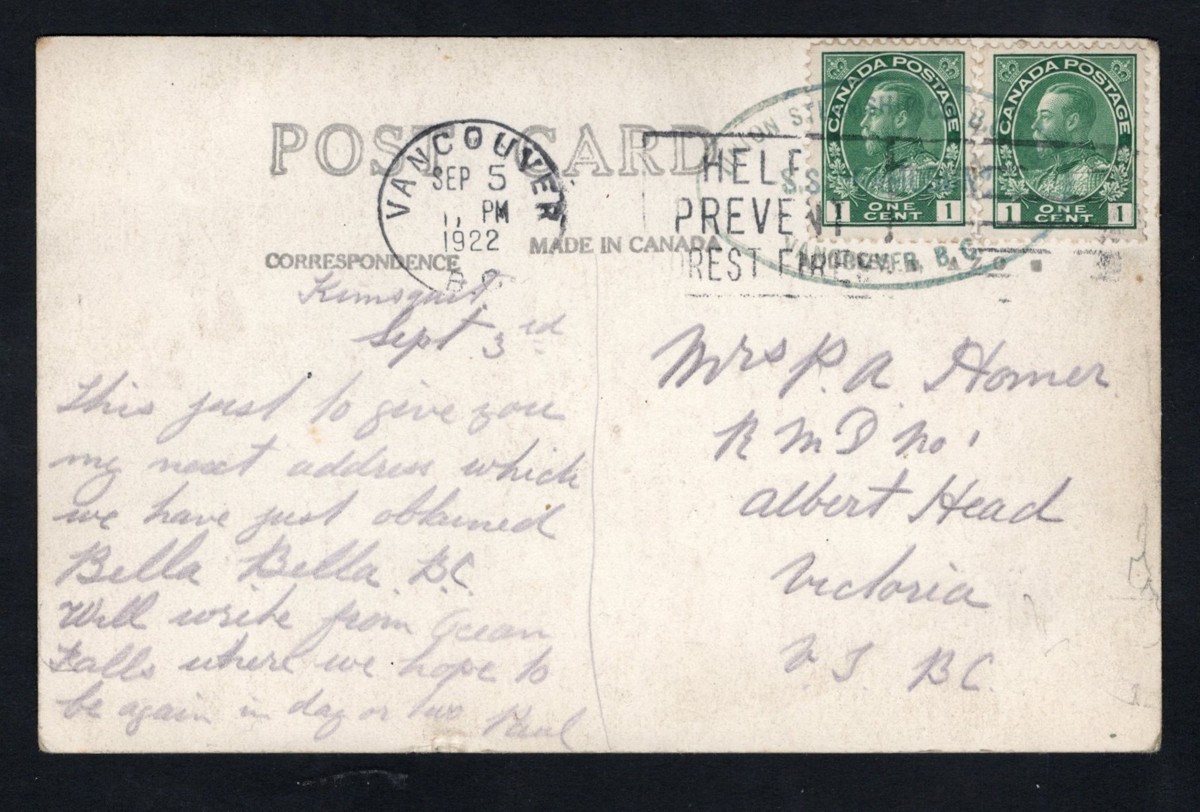 POST CARD
VANCOUVER
SEP 5
PM
1922
B C
HELP
PREVENT
FOREST FIRES
UNION S
S.S.
VANCOUVER, B.C.
CANADA POSTAGE
1 ONE CENT 1
CANADA POSTAGE
1 ONE CENT 1
MADE IN CANADA
CORRESPONDENCE
Kimsquit
Sept 3rd
This just to give you
my next address which
we have just obtained
Bella Bella BC
Will write from Ocean
Falls where we hope to
be again in day or two Paul
Mrs P. A Homer
R M D No 1
Albert Head
Victoria
V I BC.